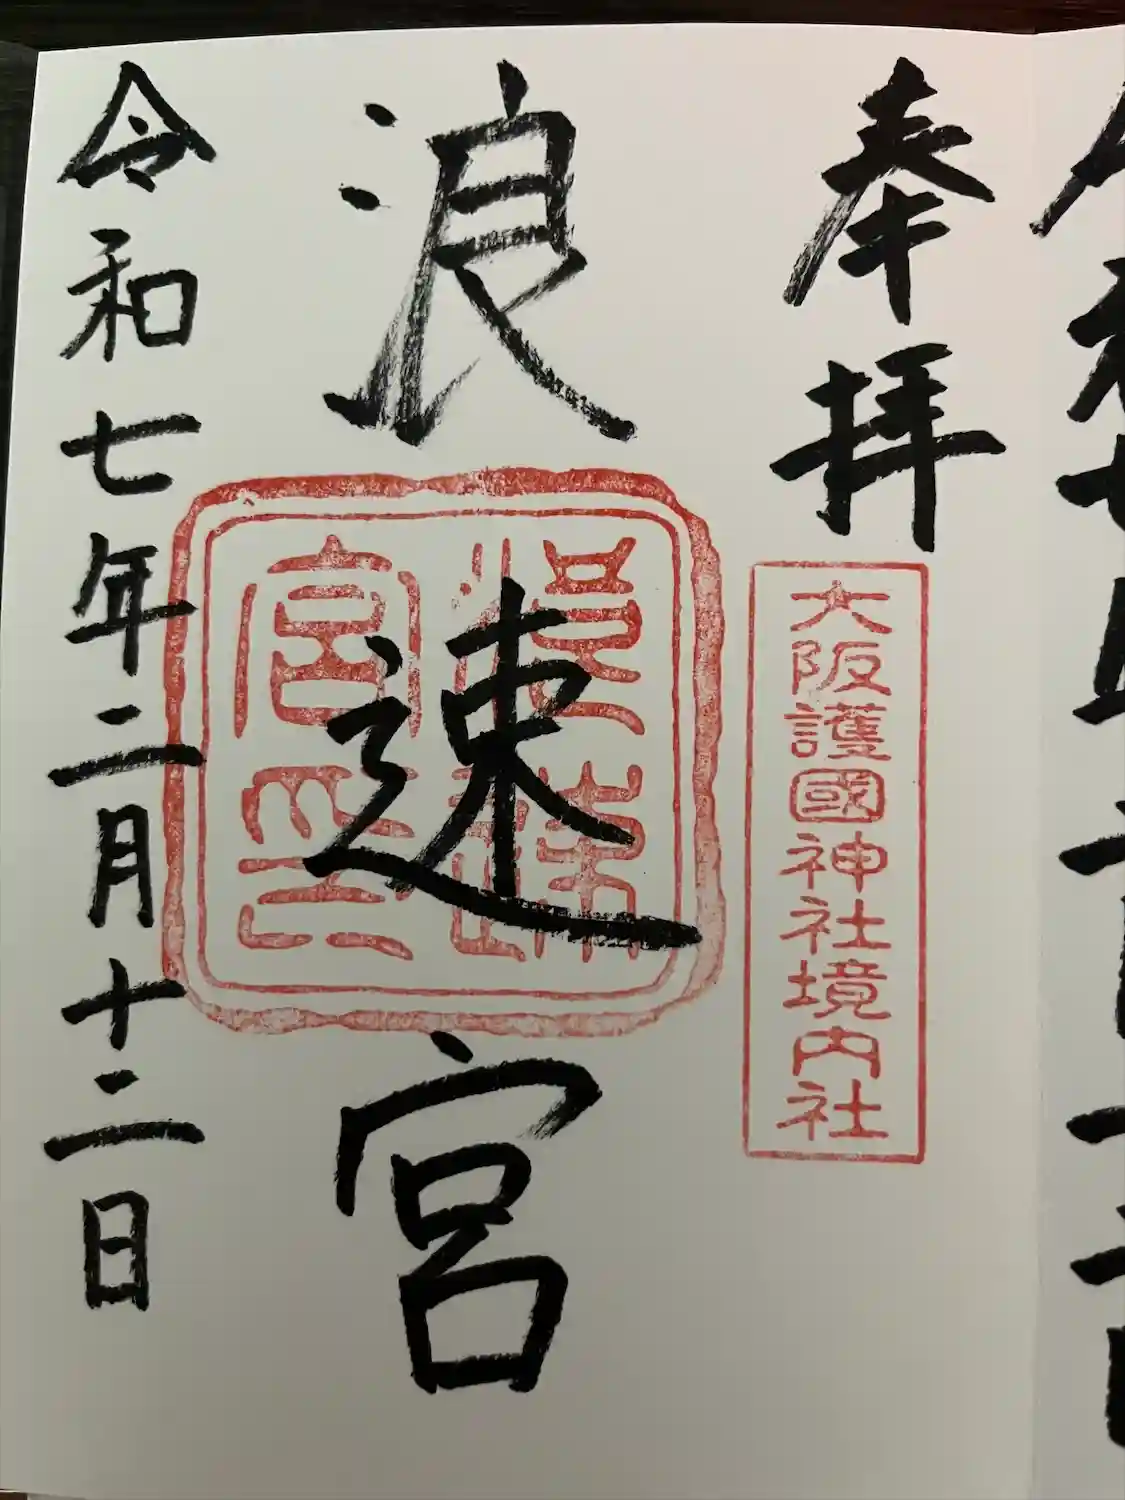 奉拝
大阪護國神社境内社
浪速宮
浪速宮印
令和七年二月十二日